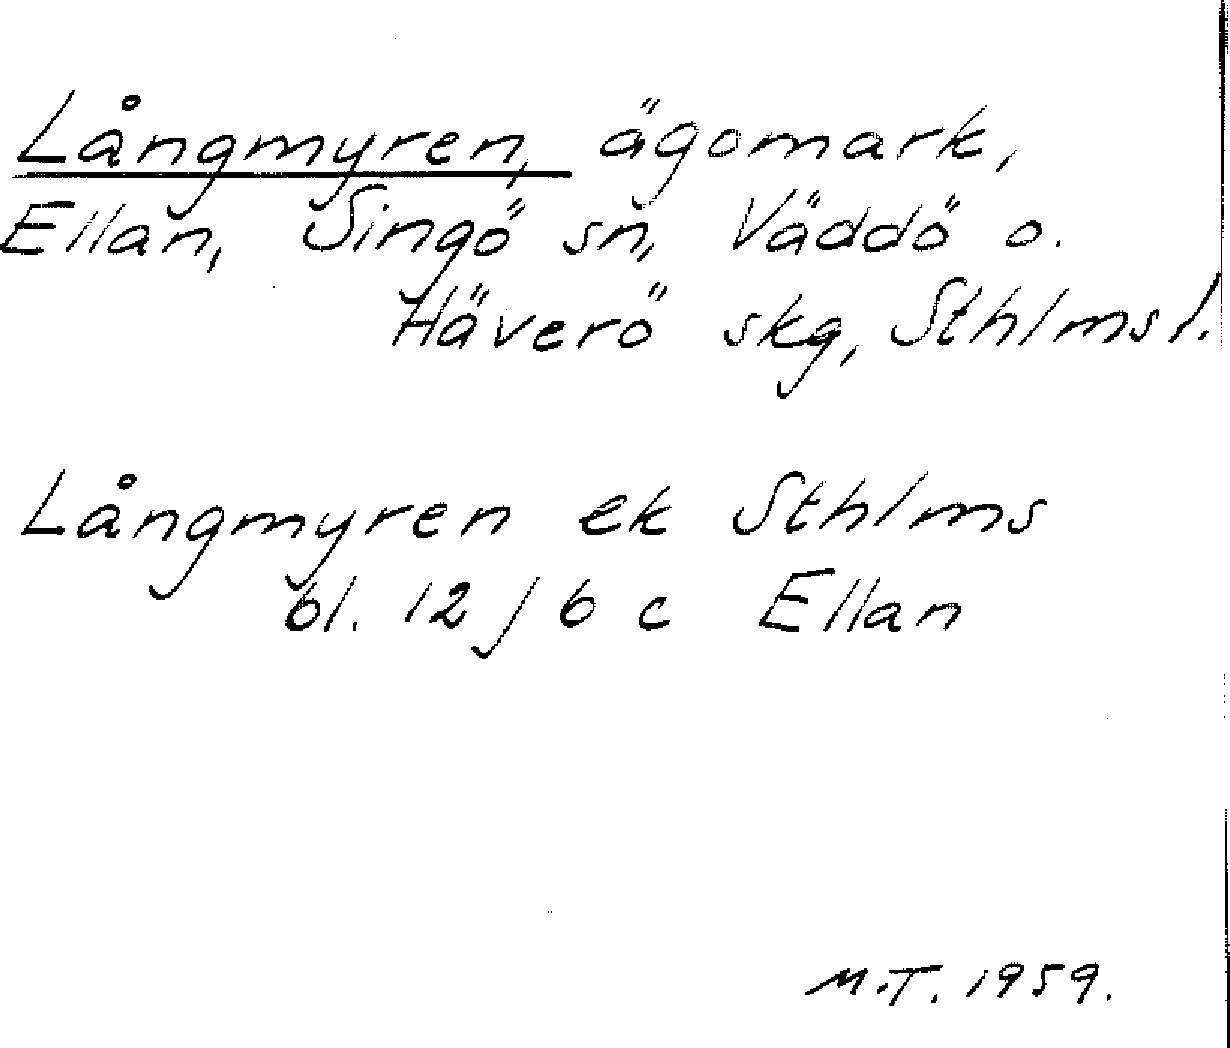 Långmyren, ägomark,
Ellan, Singö sn, Väddö o.
Häverö skg, Sthlms l.
Långmyren ek Sthlms
bl. 12 j 6 c Ellan
M.T. 1959.